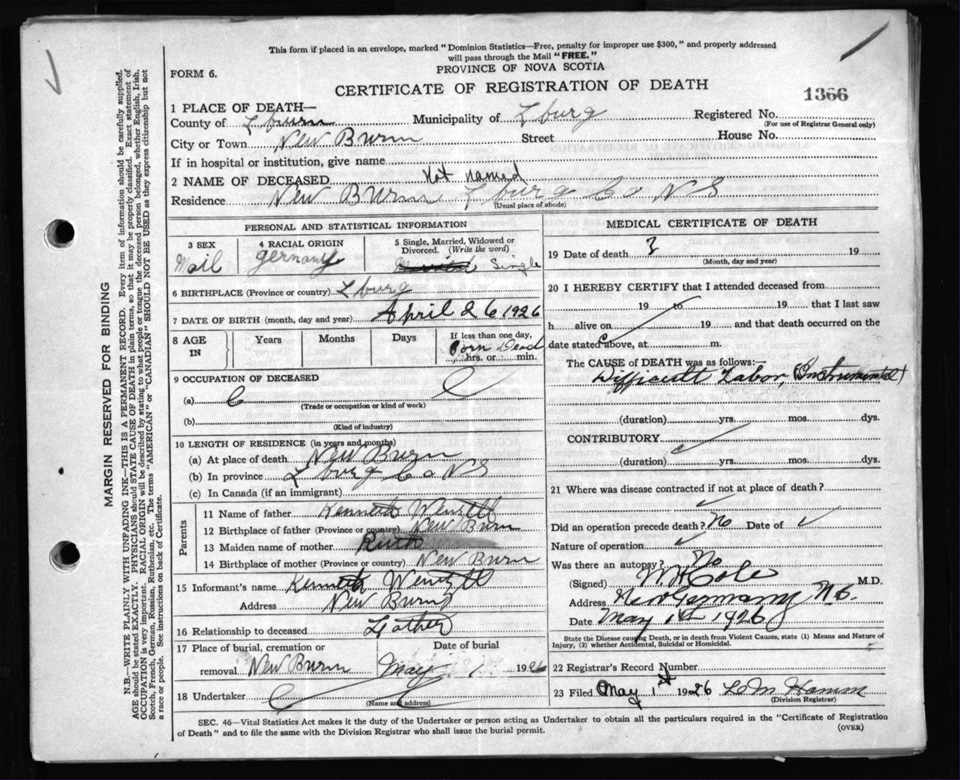 This form if placed in an envelope, marked "Dominion Statistics—Free, penalty for improper use $300," and properly addressed
will pass through the Mail "FREE."
FORM 6.
PROVINCE OF NOVA SCOTIA
CERTIFICATE OF REGISTRATION OF DEATH
1366
1 PLACE OF DEATH—
County of L burn Municipality of L burg Registered No.
(For use of Registrar General only)
City or Town New Burn Street House No.
If in hospital or institution, give name
2 NAME OF DECEASED Not named
Residence New Burn L burg Co N S
(Usual place of abode)
PERSONAL AND STATISTICAL INFORMATION
3 SEX 4 RACIAL ORIGIN 5 Single, Married, Widowed or Divorced. (Write the word)
Mail germany Single
6 BIRTHPLACE (Province or country) L burg
7 DATE OF BIRTH (month, day and year) April 26 1926
8 AGE IN Years Months Days If less than one day, hrs. or min.
Born Dead
9 OCCUPATION OF DECEASED
(a)
(Trade or occupation or kind of work)
(b)
(Kind of industry)
10 LENGTH OF RESIDENCE (in years and months)
(a) At place of death New Burn
(b) In province L burg Co N S
(c) In Canada (if an immigrant)
Parents
11 Name of father Kenneth Wentzell
12 Birthplace of father (Province or country) New Burn
13 Maiden name of mother Ruth
14 Birthplace of mother (Province or country) New Burn
15 Informant's name Kenneth Wentzell
Address New Burn
16 Relationship to deceased Father
17 Place of burial, cremation or removal New Burn Date of burial May 1 1926
18 Undertaker
(Name and address)
MEDICAL CERTIFICATE OF DEATH
19 Date of death 19
(Month, day and year)
20 I HEREBY CERTIFY that I attended deceased from
19 to 19 that I last saw
h alive on 19 and that death occurred on the
date stated above, at m.
The CAUSE of DEATH was as follows:—
Difficult Labor, (Instrumental)
(duration) yrs. mos. dys.
CONTRIBUTORY
(duration) yrs. mos. dys.
21 Where was disease contracted if not at place of death?
Did an operation precede death? No Date of
Nature of operation
Was there an autopsy? No
(Signed) W H Cole M.D.
Address New Germany N.S.
Date May 1st 1926
State the Disease causing Death, or in death from Violent Causes, state (1) Means and Nature of
Injury, (2) whether Accidental, Suicidal or Homicidal.
22 Registrar's Record Number
23 Filed May 1st 1926 L M Hamm
(Division Registrar)
SEC. 46—Vital Statistics Act makes it the duty of the Undertaker or person acting as Undertaker to obtain all the particulars required in the "Certificate of Registration
of Death" and to file the same with the Division Registrar who shall issue the burial permit.
(OVER)
MARGIN RESERVED FOR BINDING
N.B.—WRITE PLAINLY WITH UNFADING INK—THIS IS A PERMANENT RECORD. Every item of information should be carefully supplied.
AGE should be stated EXACTLY. PHYSICIANS should STATE CAUSE OF DEATH in plain terms, so that it may be properly classified. Exact statement of
OCCUPATION is very important. RACIAL ORIGIN will be described by stating to what people or tongue the deceased person belonged, whether English, Irish,
Scotch, French, German, Russian, Ruthenian, etc. The terms "AMERICAN" or "CANADIAN" SHOULD NOT BE USED as they express citizenship but not
a race or people. See instructions on back of Certificate.